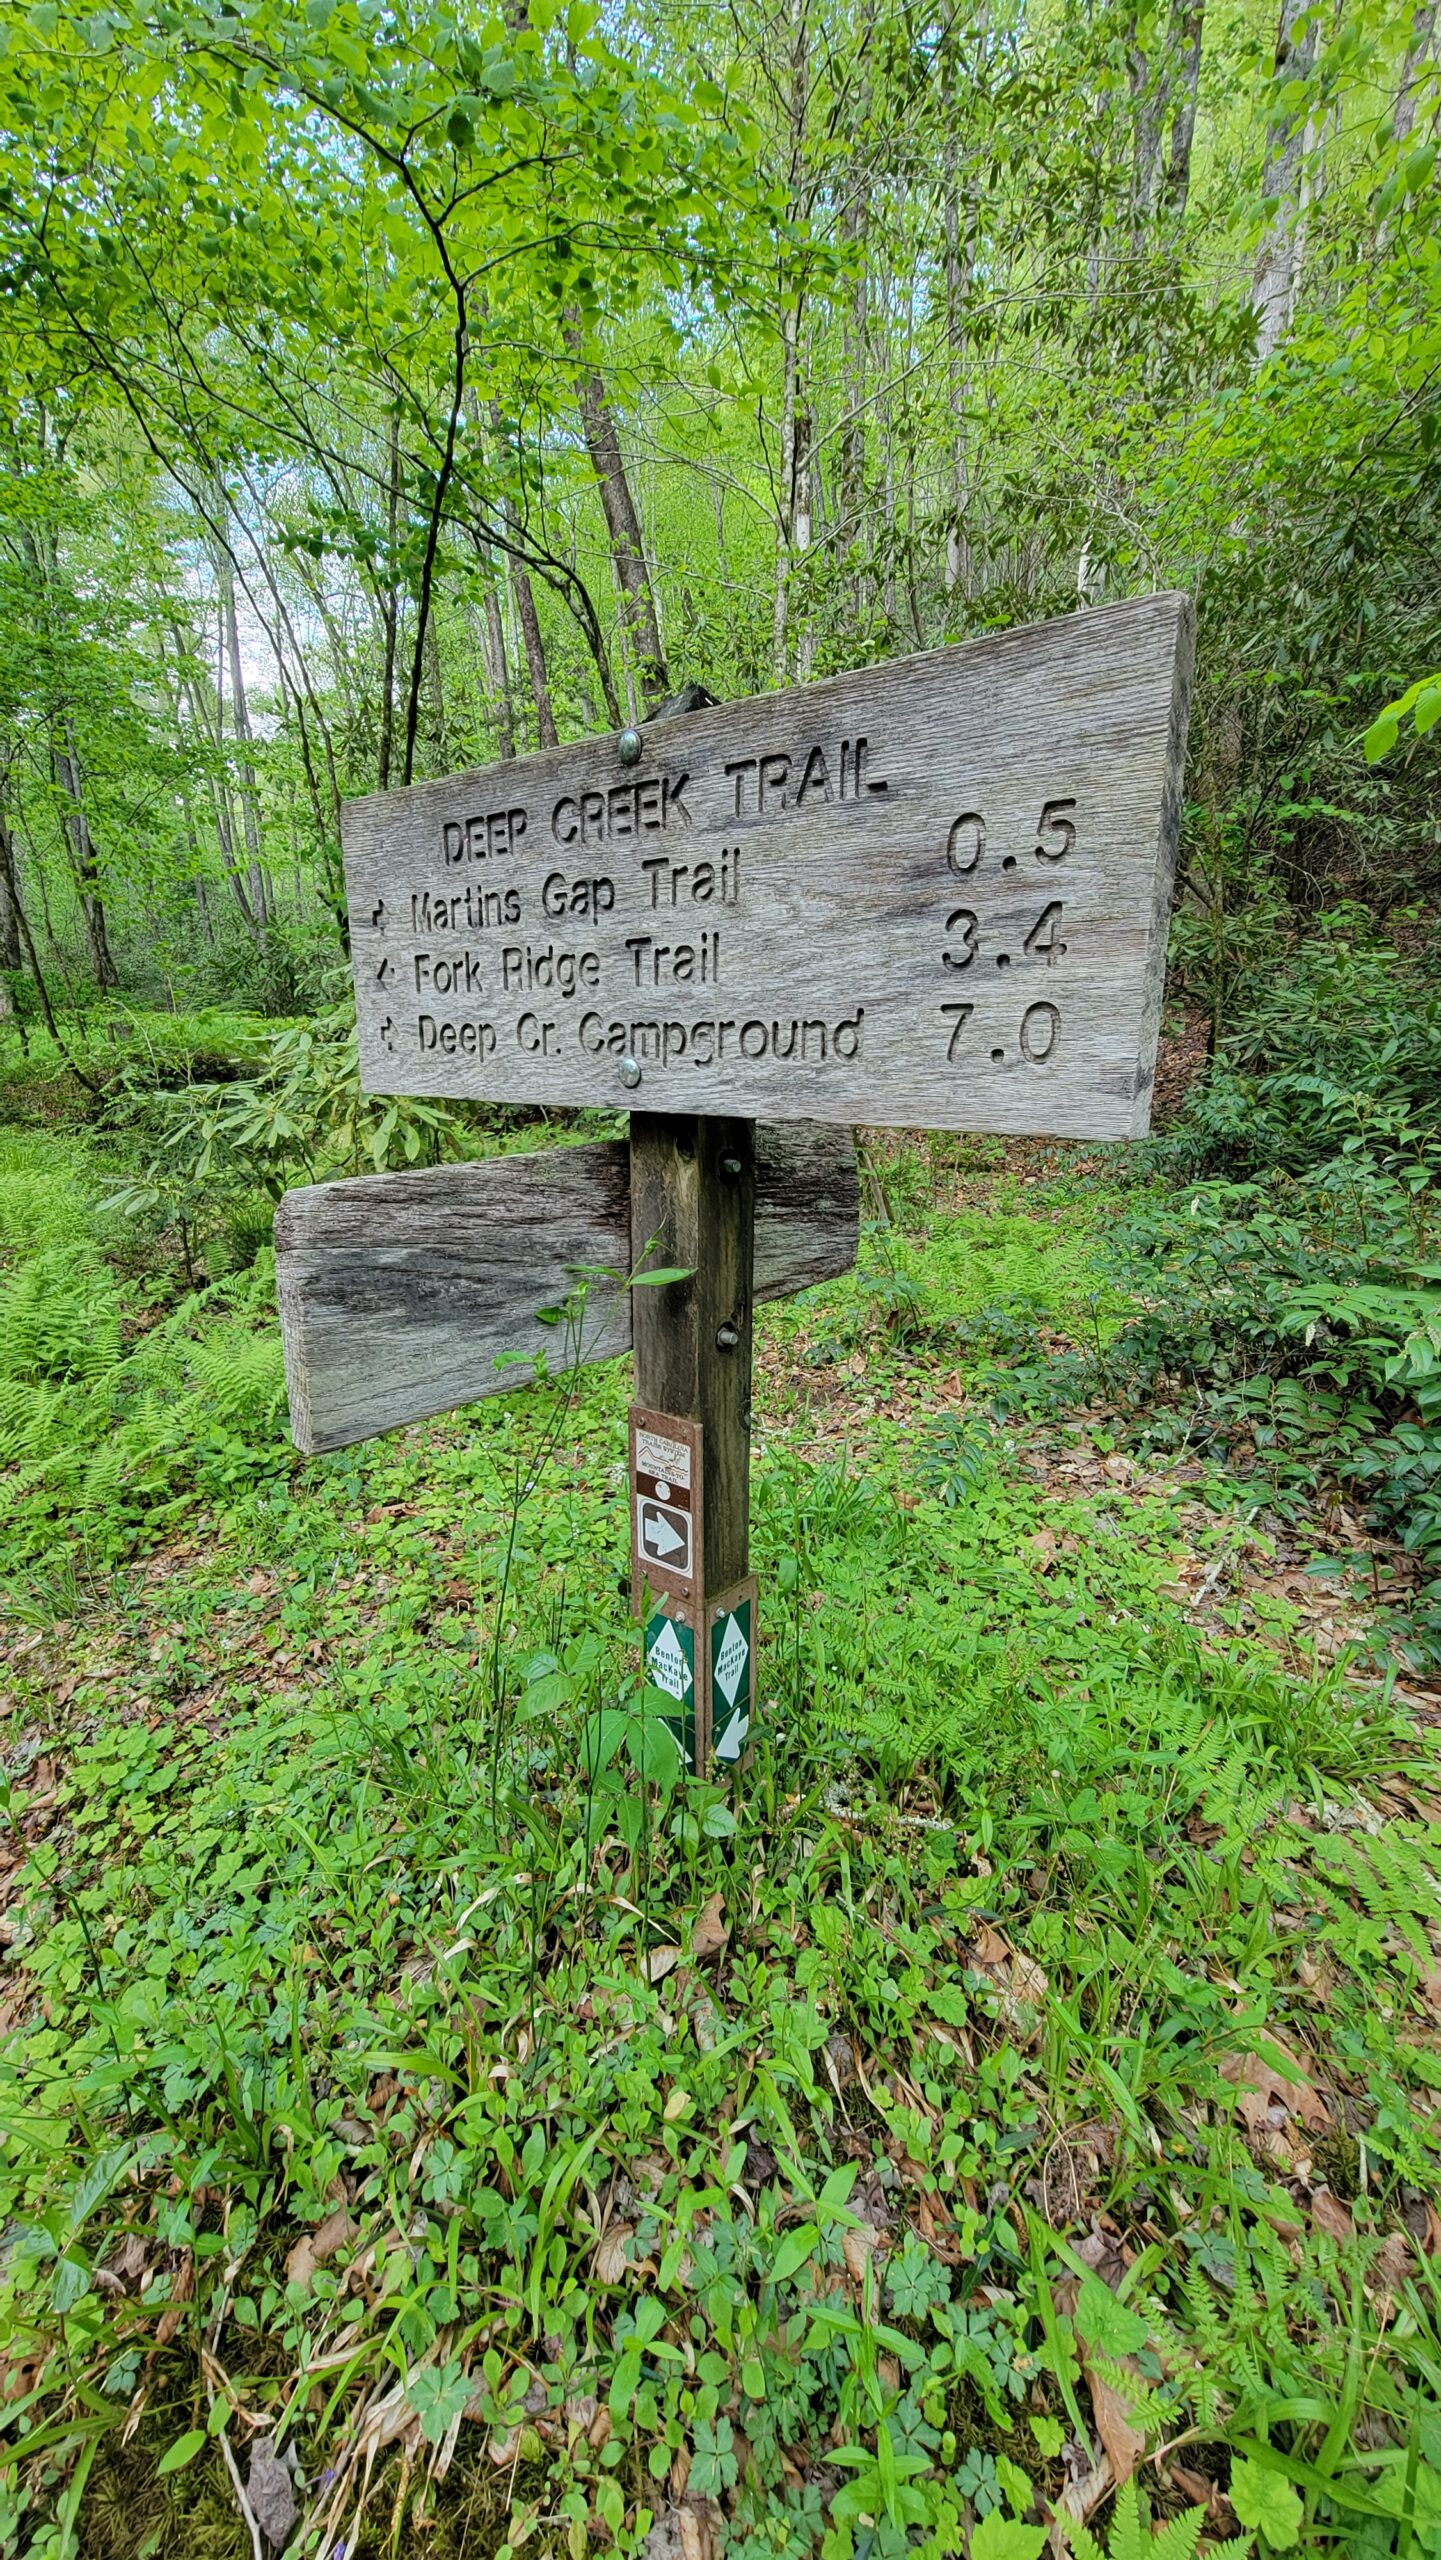 DEEP CREEK TRAIL
Martins Gap Trail 0.5
Fork Ridge Trail 3.4
Deep Cr. Campground 7.0
NORTH CAROLINA
TRAILS SYSTEM
MOUNTAINS-TO-
SEA TRAIL
Benton
MacKaye
Trail
Benton
MacKaye
Trail